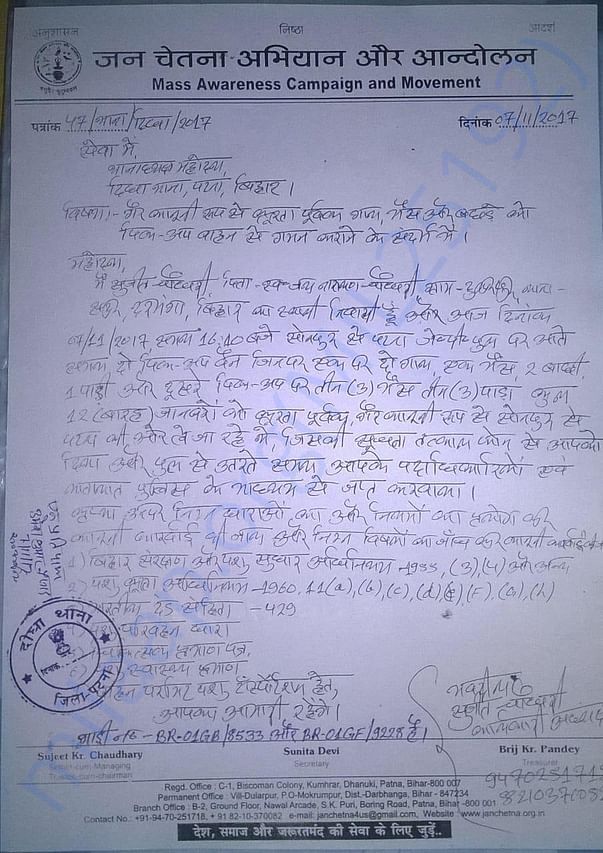 अनुशासन निष्ठा आदर्श
जन चेतना अभियान और आन्दोलन
Mass Awareness Campaign and Movement
पत्रांक 47/थाना/दिघा/2017 दिनांक 07/11/2017
सेवा में,
थानाध्यक्ष महोदय,
दिघा थाना, पटना, बिहार।
विषय:- गैर कानूनी रूप से क्रूरता पूर्वक गाय, भैंस और बछड़े को
पिक-अप वाहन से गमन कराने के संदर्भ में।
महोदय,
मैं सुजीत चौधरी पिता - स्व. जय नारायण चौधरी ग्राम - थाना -
दरभंगा, बिहार का स्थायी निवासी हूँ और आज दिनांक
07/11/2017 समय 16:10 बजे सोनपुर से पटना जेपी पुल पर आते
समय दो पिक-अप वैन जिनपर एक पर दो गाय, एक भैंस 2 बाछी,
1 पाड़ी और दूसरे पिक-अप पर तीन (3) भैंस तीन (3) पाड़ा कुल
12 (बारह) जानवरों को क्रूरता पूर्वक, गैर कानूनी रूप से सोनपुर से
पटना की ओर ले जा रहे थे, जिसकी सूचना तत्काल फोन से आपको
दिया और पुल से उतरते समय आपके पदाधिकारियों एवं
यातायात पुलिस के माध्यम से जप्त करवाया।
कृपया उपर निम्न धाराओं का और नियमों का प्रयोग कर
कानूनी कार्रवाई की जाय और निम्न विषयों का जाँच कर कानूनी कार्रवाई
1) बिहार संरक्षण और पशु सुधार अधिनियम - 1955, (3), (4) और अन्य
2) पशु क्रूरता अधिनियम - 1960, 11(a), (b), (c), (d) (e) (f), (g), (h)
भारतीय दंड संहिता - 429
पशु परिवहन
प्रमाण पत्र,
पशु स्वास्थ्य प्रमाण
वाहन परमिट पशु ट्रांसपोर्टेशन हेतु,
आपका आभारी रहेंगे।
गाड़ी नं० - BR-01GB/8533 और BR-01GF/9228 है।
थाना
दिनांक
जिला-पटना
भवदीय
सुजीत चौधरी
Sujeet Kr. Chaudhary Sunita Devi Brij Kr. Pandey
Secretary Treasurer
Regd. Office : C-1, Biscomon Colony, Kumhrar, Dhanuki, Patna, Bihar-800 007
Permanent Office : Vill-Dularpur, P.O-Mokrumpur, Dist.-Darbhanga, Bihar - 847234
Branch Office : B-2, Ground Floor, Nawal Arcade, S.K. Puri, Boring Road, Patna, Bihar -800 001
Contact No.: +91-94-70-251718, + 91 82-10-370082 e-mail: janchetna4us@gmail.com, Website : www.janchetna.org.in
देश, समाज और जरूरतमंद की सेवा के लिए जुड़ें..